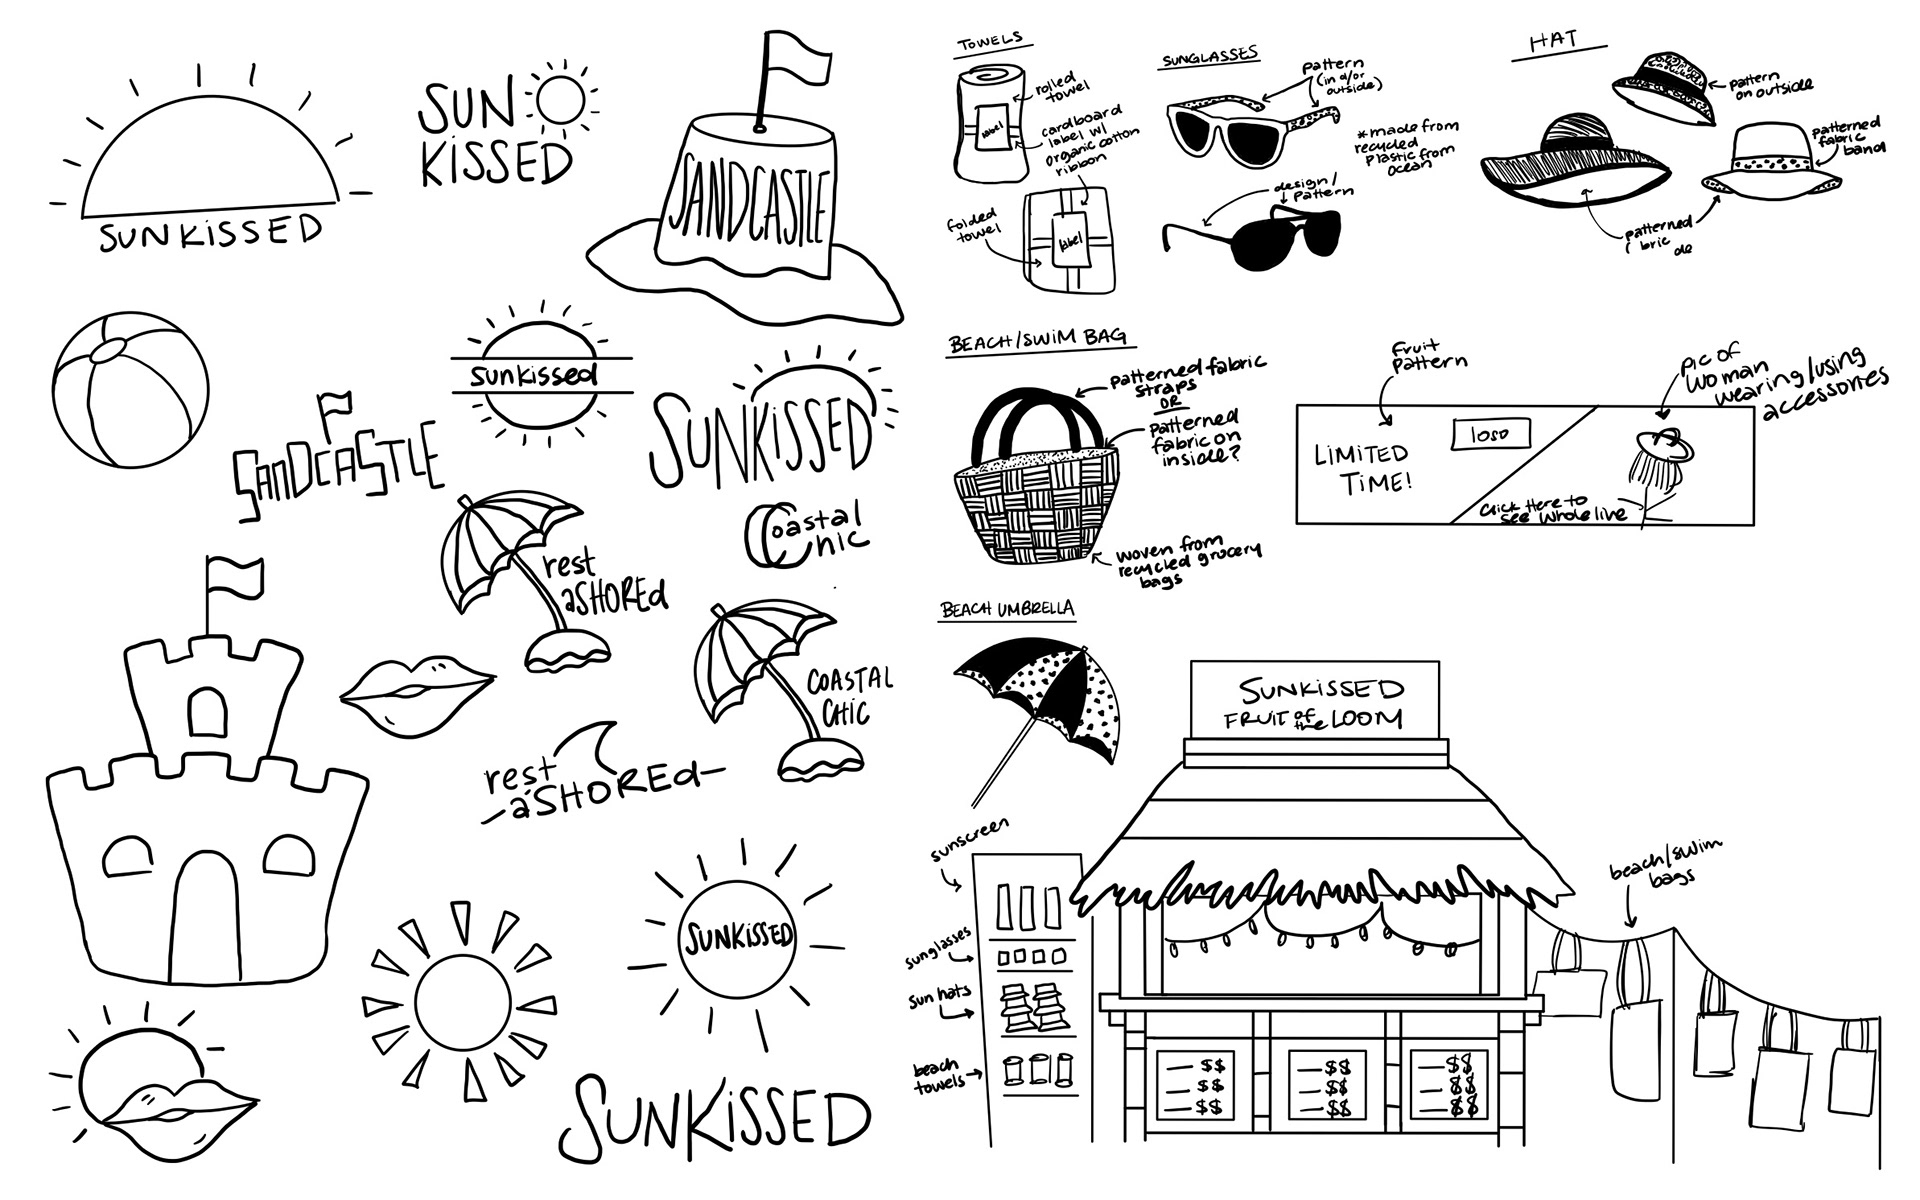 SUNKISSED
SUN
KISSED
SANDCASTLE
sunkissed
SANDCASTLE
SUNKISSED
Coastal
Chic
rest
aSHOREd
COASTAL
CHIC
rest
aSHOREd
SUNKISSED
SUNKISSED
TOWELS
rolled
towel
label
cardboard
label w/
organic cotton
ribbon
folded
towel
label
SUNGLASSES
pattern
(in d/or
outside)
*made from
recycled
plastic from
ocean
design/
pattern
HAT
pattern
on outside
patterned
fabric
band
patterned
bric
de
BEACH/SWIM BAG
patterned fabric
straps
OR
patterned
fabric on
inside?
woven from
recycled grocery
bags
fruit
pattern
pic of
woman
wearing/using
accessories
LIMITED
TIME!
logo
Click Here to
see whole line
BEACH UMBRELLA
SUNKISSED
FRUIT of the LOOM
sunscreen
sunglasses
sun hats
beach
towels
beach/swim
bags
$$
$$
$$
$$
$$
$$
$$
$$
$$